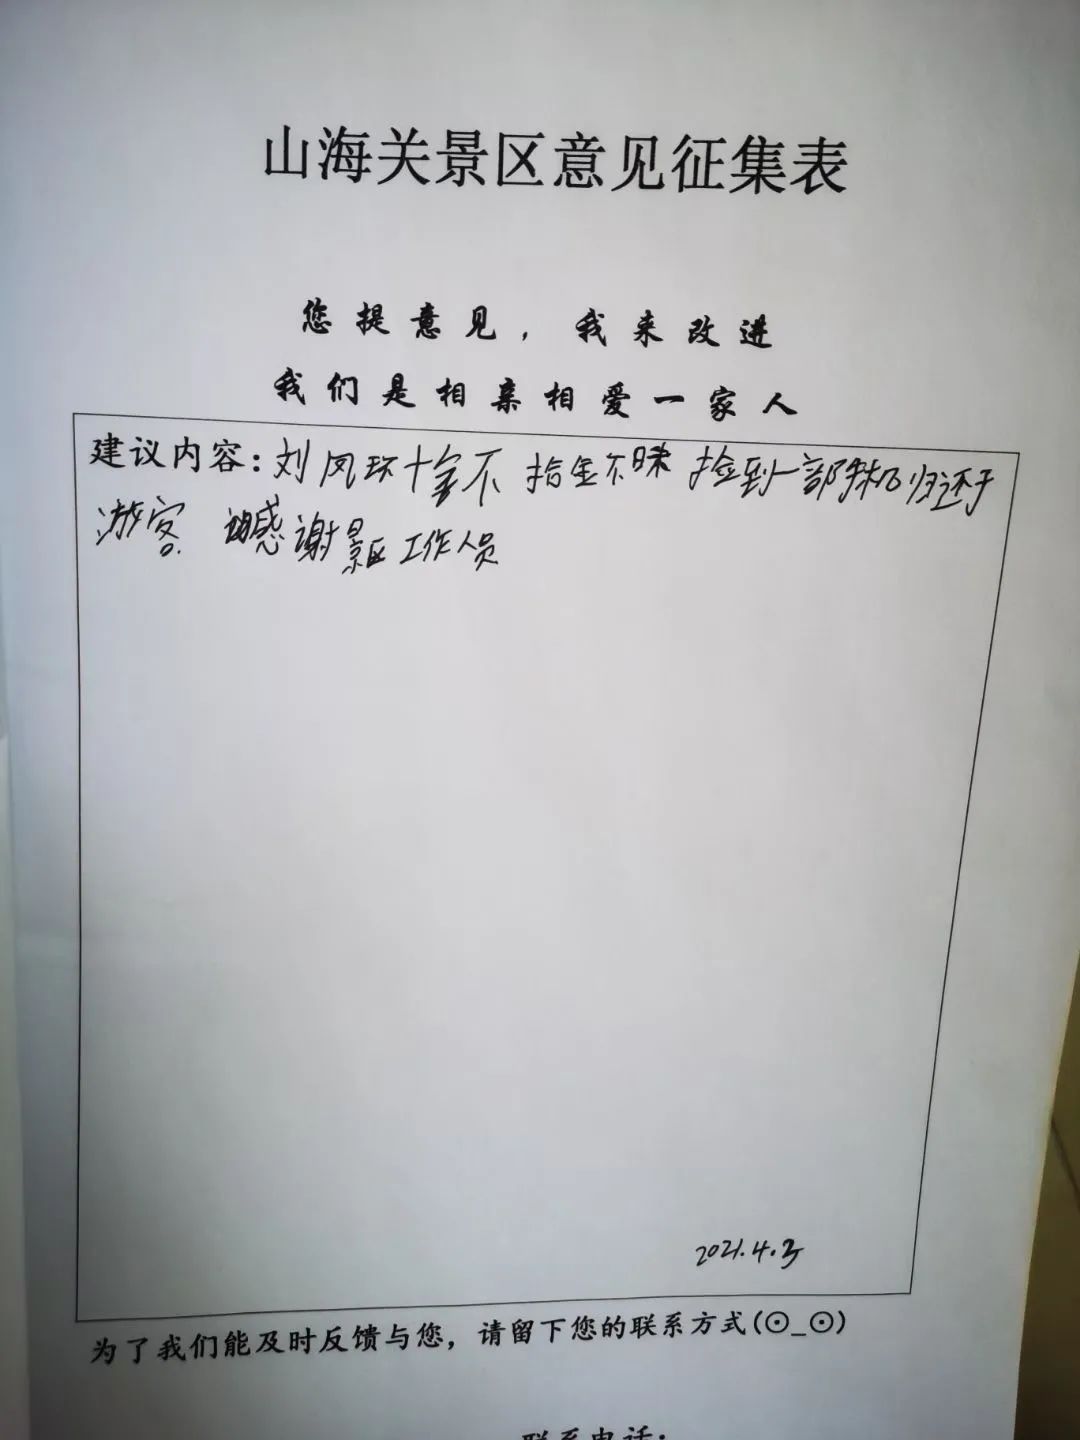 山海关景区意见征集表
您提意见，我来改进
我们是相亲相爱一家人
建议内容：刘凤环十金不 拾金不昧 捡到一部手机归还于
游客. 感谢景区工作人员
2021.4.3
为了我们能及时反馈与您，请留下您的联系方式(⊙_⊙)
联系电话：